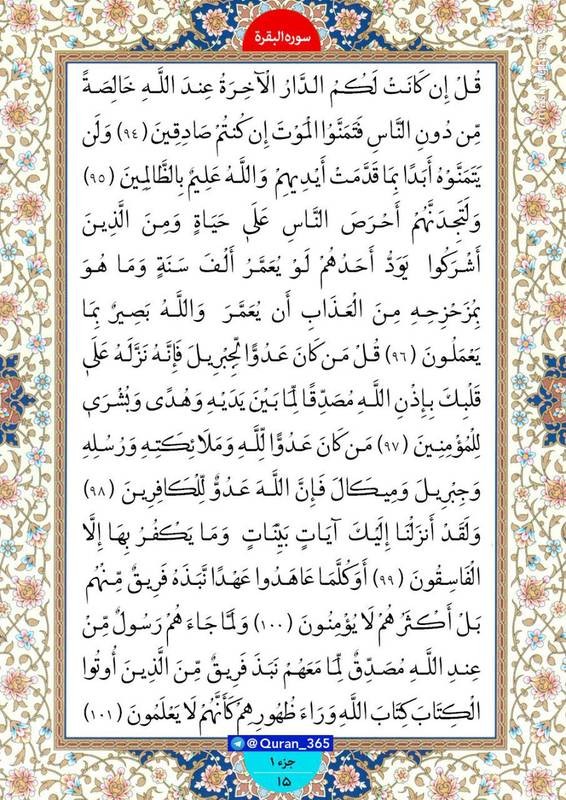 سوره البقرة
قُلْ إِن كَانَتْ لَكُمُ الدَّارُ الْآخِرَةُ عِندَ اللَّهِ خَالِصَةً
مِّن دُونِ النَّاسِ فَتَمَنَّوُا الْمَوْتَ إِن كُنتُمْ صَادِقِينَ (٩٤) وَلَن
يَتَمَنَّوْهُ أَبَدًا بِمَا قَدَّمَتْ أَيْدِيهِمْ وَاللَّهُ عَلِيمٌ بِالظَّالِمِينَ (٩٥)
وَلَتَجِدَنَّهُمْ أَحْرَصَ النَّاسِ عَلَىٰ حَيَاةٍ وَمِنَ الَّذِينَ
أَشْرَكُوا يَوَدُّ أَحَدُهُمْ لَوْ يُعَمَّرُ أَلْفَ سَنَةٍ وَمَا هُوَ
بِمُزَحْزِحِهِ مِنَ الْعَذَابِ أَن يُعَمَّرَ وَاللَّهُ بَصِيرٌ بِمَا
يَعْمَلُونَ (٩٦) قُلْ مَن كَانَ عَدُوًّا لِّجِبْرِيلَ فَإِنَّهُ نَزَّلَهُ عَلَىٰ
قَلْبِكَ بِإِذْنِ اللَّهِ مُصَدِّقًا لِّمَا بَيْنَ يَدَيْهِ وَهُدًى وَبُشْرَىٰ
لِلْمُؤْمِنِينَ (٩٧) مَن كَانَ عَدُوًّا لِّلَّهِ وَمَلَائِكَتِهِ وَرُسُلِهِ
وَجِبْرِيلَ وَمِيكَالَ فَإِنَّ اللَّهَ عَدُوٌّ لِّلْكَافِرِينَ (٩٨)
وَلَقَدْ أَنزَلْنَا إِلَيْكَ آيَاتٍ بَيِّنَاتٍ وَمَا يَكْفُرُ بِهَا إِلَّا
الْفَاسِقُونَ (٩٩) أَوَكُلَّمَا عَاهَدُوا عَهْدًا نَّبَذَهُ فَرِيقٌ مِّنْهُم
بَلْ أَكْثَرُهُمْ لَا يُؤْمِنُونَ (١٠٠) وَلَمَّا جَاءَهُمْ رَسُولٌ مِّنْ
عِندِ اللَّهِ مُصَدِّقٌ لِّمَا مَعَهُمْ نَبَذَ فَرِيقٌ مِّنَ الَّذِينَ أُوتُوا
الْكِتَابَ كِتَابَ اللَّهِ وَرَاءَ ظُهُورِهِمْ كَأَنَّهُمْ لَا يَعْلَمُونَ (١٠١)
@Quran_365
جزء ۱
۱۵